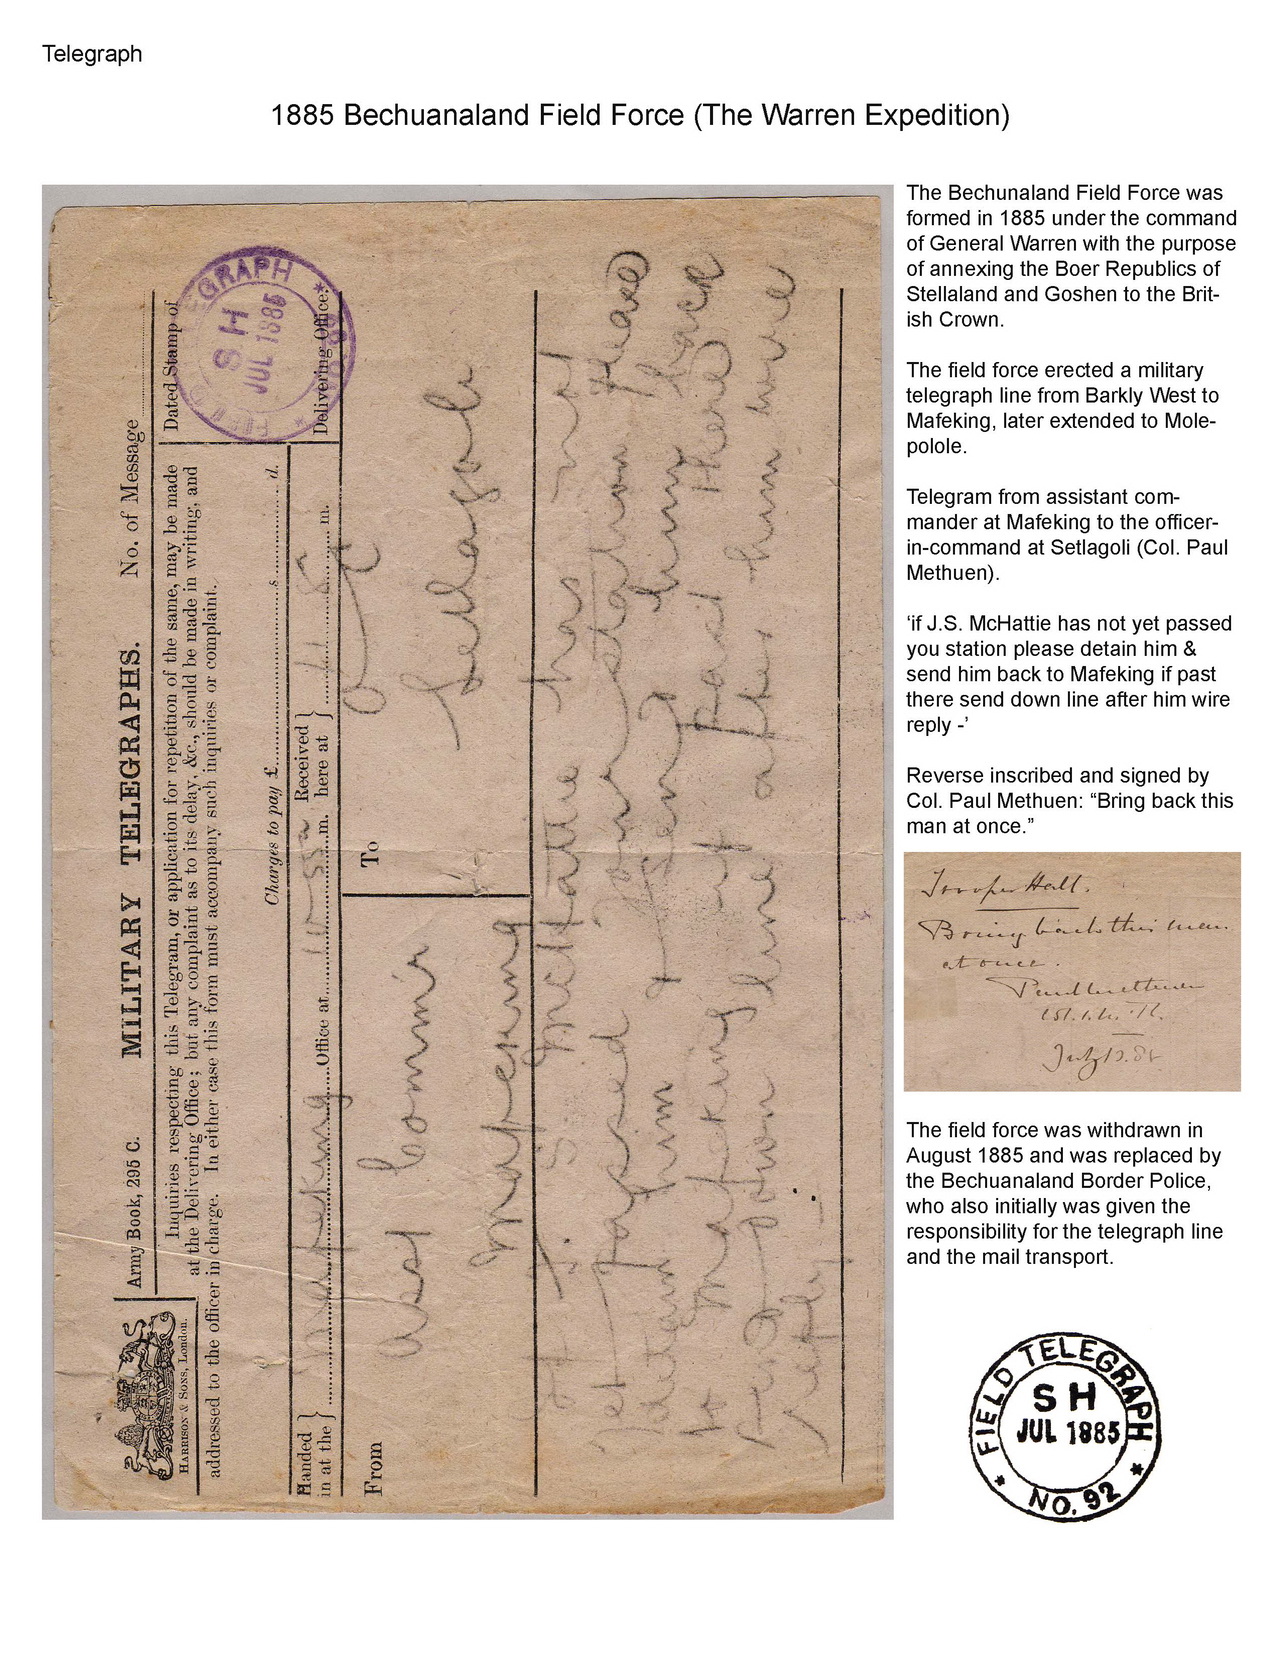 Telegraph
1885 Bechuanaland Field Force (The Warren Expedition)
Army Book, 295 C. MILITARY TELEGRAPHS. No. of Message
HARRISON & SONS, London.
Inquiries respecting this Telegram, or application for repetition of the same, may be made
at the Delivering Office; but any complaint as to its delay, &c., should be made in writing, and
addressed to the officer in charge. In either case this form must accompany such inquiries or complaint.
Dated Stamp of
Delivering Office.
GRAPH
SH
JUL 1885
Charges to pay £ s. d.
Handed in at the } Mafeking Office at 11-55 m. Received here at } 11 m.
From Asst Commr
Mafeking
To
Setlagoli
If J. S. McHattie has not
yet passed your station please
detain him & send him back
to Mafeking if past there
send down line after him wire
reply –
The Bechunaland Field Force was
formed in 1885 under the command
of General Warren with the purpose
of annexing the Boer Republics of
Stellaland and Goshen to the Brit-
ish Crown.
The field force erected a military
telegraph line from Barkly West to
Mafeking, later extended to Mole-
polole.
Telegram from assistant com-
mander at Mafeking to the officer-
in-command at Setlagoli (Col. Paul
Methuen).
‘if J.S. McHattie has not yet passed
you station please detain him &
send him back to Mafeking if past
there send down line after him wire
reply -’
Reverse inscribed and signed by
Col. Paul Methuen: “Bring back this
man at once.”
Trooper Hall.
Bring back this man
at once.
Paul Methuen
July 13. 85
The field force was withdrawn in
August 1885 and was replaced by
the Bechuanaland Border Police,
who also initially was given the
responsibility for the telegraph line
and the mail transport.
FIELD TELEGRAPH
SH
JUL 1885
* NO. 92 *